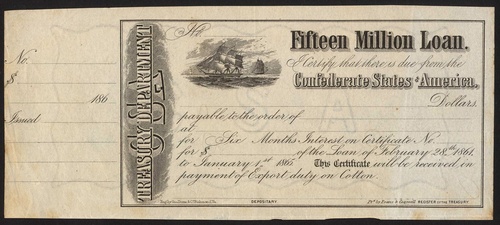 No.
$
186
Issued
TREASURY DEPARTMENT
No.
Fifteen Million Loan.
I Certify that there is due from the
Confederate States of America,
Dollars.
payable to the order of
at
for Six Months Interest on Certificate No
for $ of the Loan of February 28.th 1861.
to January 1.st 1865. This Certificate will be received in
payment of Export duty on Cotton.
DEPOSITARY.
REGISTER OF THE TREASURY.